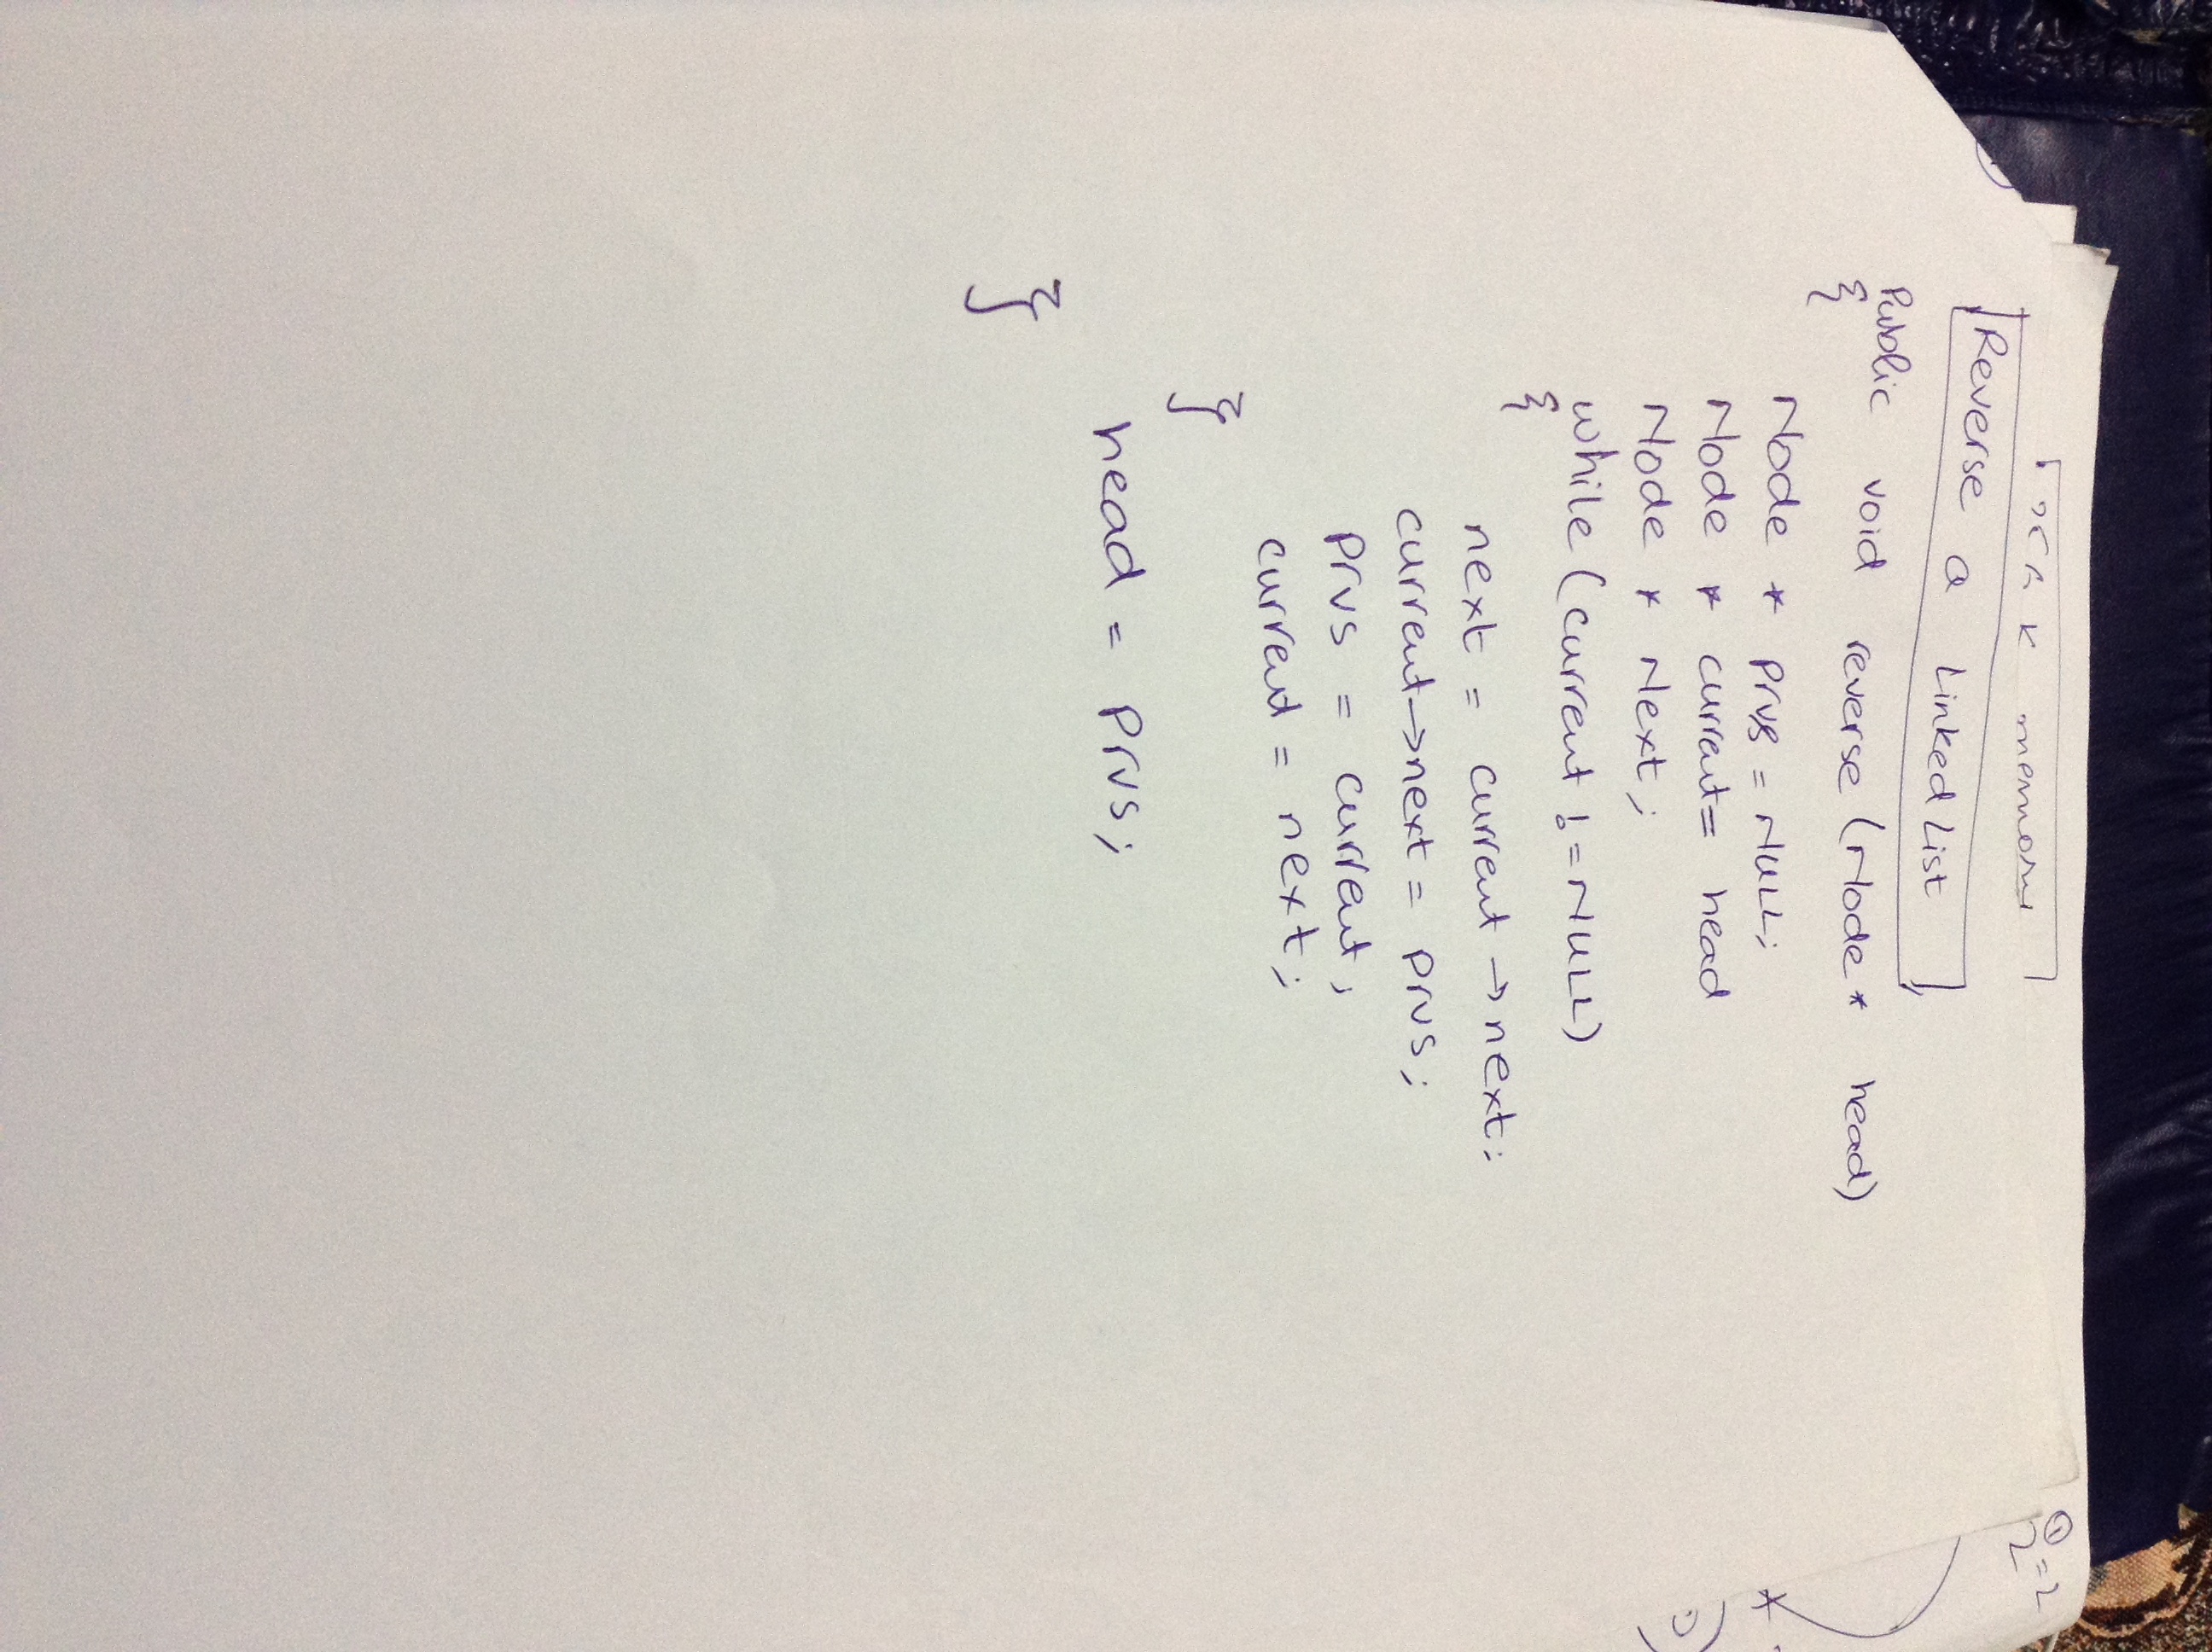 memory
Reverse a Linked List
Public void reverse (Node * head)
{
Node * prvs = NULL;
Node * current= head
Node * Next;
while (current != NULL)
{
next = current → next;
current→next = prvs;
prvs = current;
current = next;
}
head = prvs;
}
① = 2
2